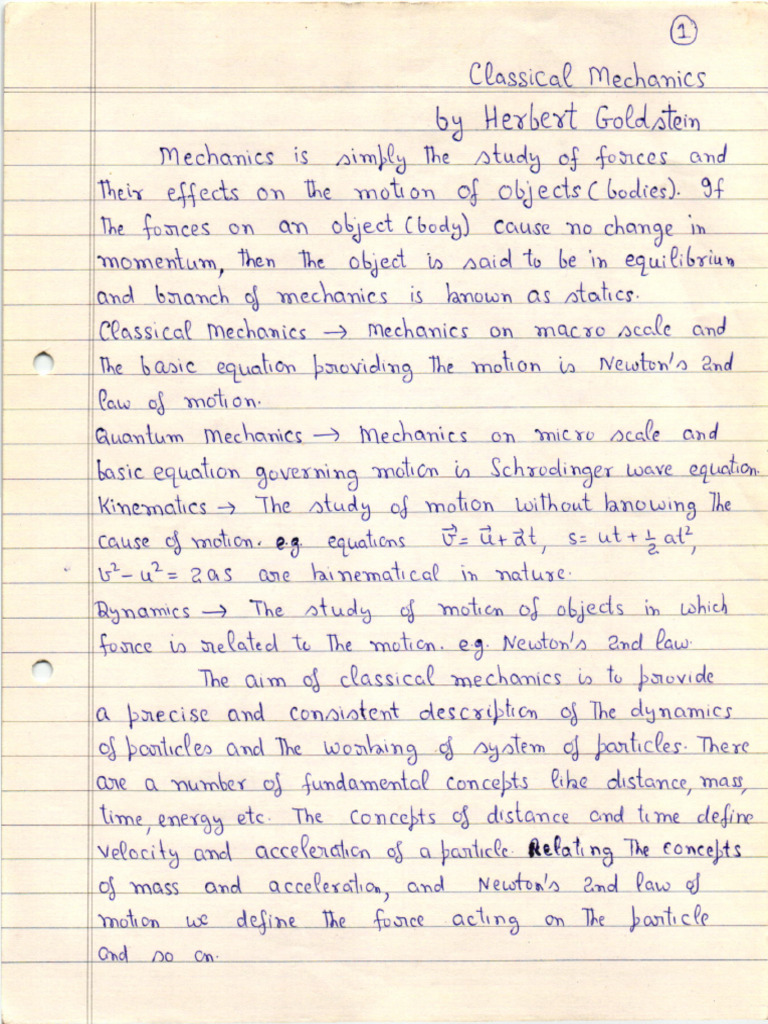 1
Classical Mechanics
by Herbert Goldstein
Mechanics is simply the study of forces and
their effects on the motion of objects (bodies). If
the forces on an object (body) cause no change in
momentum, then the object is said to be in equilibrium
and branch of mechanics is known as statics.
Classical Mechanics → Mechanics on macro scale and
the basic equation providing the motion is Newton's 2nd
law of motion.
Quantum Mechanics → Mechanics on micro scale and
basic equation governing motion is Schrodinger wave equation.
Kinematics → The study of motion without knowing the
cause of motion. e.g. equations v⃗ = u⃗ + a⃗t, s = ut + ½ at²,
v² – u² = 2as are kinematical in nature.
Dynamics → The study of motion of objects in which
force is related to the motion. e.g. Newton's 2nd law.
The aim of classical mechanics is to provide
a precise and consistent description of the dynamics
of particles and the working of system of particles. There
are a number of fundamental concepts like distance, mass,
time, energy etc. The concepts of distance and time define
velocity and acceleration of a particle. Relating the concepts
of mass and acceleration, and Newton's 2nd law of
motion we define the force acting on the particle
and so on.